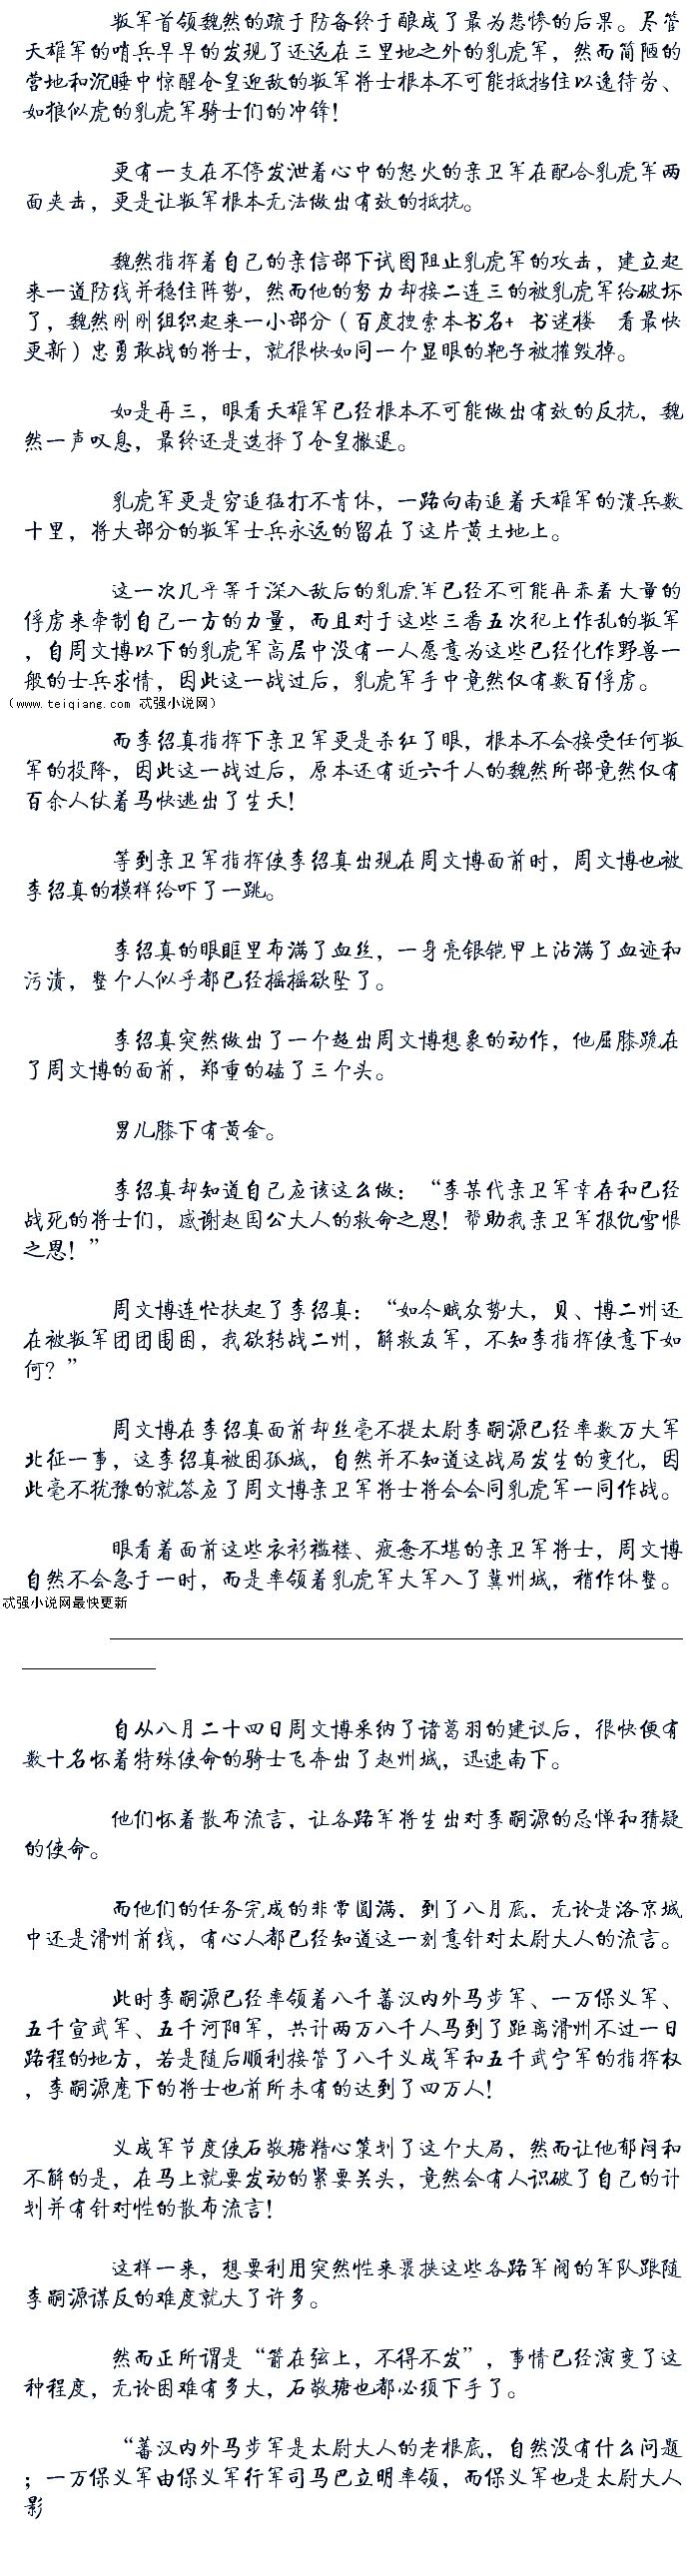 叛军首领魏然的疏于防备终于酿成了最为悲惨的后果。尽管
天雄军的哨兵早早的发现了还远在三里地之外的乳虎军，然而简陋的
营地和沉睡中惊醒仓皇迎敌的叛军将士根本不可能抵挡住以逸待劳、
如狼似虎的乳虎军骑士们的冲锋！
更有一支在不停发泄着心中的怒火的亲卫军在配合乳虎军两
面夹击，更是让叛军根本无法做出有效的抵抗。
魏然指挥着自己的亲信部下试图阻止乳虎军的攻击，建立起
来一道防线并稳住阵势，然而他的努力却接二连三的被乳虎军给破坏
了，魏然刚刚组织起来一小部分（百度搜索本书名+ 书迷楼 看最快
更新）忠勇敢战的将士，就很快如同一个显眼的靶子被摧毁掉。
如是再三，眼看天雄军已经根本不可能做出有效的反抗，魏
然一声叹息，最终还是选择了仓皇撤退。
乳虎军更是穷追猛打不肯休，一路向南追着天雄军的溃兵数
十里，将大部分的叛军士兵永远的留在了这片黄土地上。
这一次几乎等于深入敌后的乳虎军已经不可能再养着大量的
俘虏来牵制自己一方的力量，而且对于这些三番五次犯上作乱的叛军
，自周文博以下的乳虎军高层中没有一人愿意为这些已经化作野兽一
般的士兵求情，因此这一战过后，乳虎军手中竟然仅有数百俘虏。
（www.teiqiang.com 忒强小说网）
而李绍真指挥下亲卫军更是杀红了眼，根本不会接受任何叛
军的投降，因此这一战过后，原本还有近六千人的魏然所部竟然仅有
百余人仗着马快逃出了生天！
等到亲卫军指挥使李绍真出现在周文博面前时，周文博也被
李绍真的模样给吓了一跳。
李绍真的眼眶里布满了血丝，一身亮银铠甲上沾满了血迹和
污渍，整个人似乎都已经摇摇欲坠了。
李绍真突然做出了一个超出周文博想象的动作，他屈膝跪在
了周文博的面前，郑重的磕了三个头。
男儿膝下有黄金。
李绍真却知道自己应该这么做：“李某代亲卫军幸存和已经
战死的将士们，感谢赵国公大人的救命之恩！帮助我亲卫军报仇雪恨
之恩！”
周文博连忙扶起了李绍真：“如今贼众势大，贝、博二州还
在被叛军团团围困，我欲转战二州，解救友军，不知李指挥使意下如
何？”
周文博在李绍真面前却丝毫不提太尉李嗣源已经率数万大军
北征一事，这李绍真被困孤城，自然并不知道这战局发生的变化，因
此毫不犹豫的就答应了周文博亲卫军将士将会会同乳虎军一同作战。
眼看着面前这些衣衫褴褛、疲惫不堪的亲卫军将士，周文博
自然不会急于一时，而是率领着乳虎军大军入了冀州城，稍作休整。
忒强小说网最快更新
自从八月二十四日周文博采纳了诸葛羽的建议后，很快便有
数十名怀着特殊使命的骑士飞奔出了赵州城，迅速南下。
他们怀着散布流言，让各路军将生出对李嗣源的忌惮和猜疑
的使命。
而他们的任务完成的非常圆满，到了八月底，无论是洛京城
中还是滑州前线，有心人都已经知道这一刻意针对太尉大人的流言。
此时李嗣源已经率领着八千蕃汉内外马步军、一万保义军、
五千宣武军、五千河阳军，共计两万八千人马到了距离滑州不过一日
路程的地方，若是随后顺利接管了八千义成军和五千武宁军的指挥权
，李嗣源麾下的将士也前所未有的达到了四万人！
义成军节度使石敬瑭精心策划了这个大局，然而让他郁闷和
不解的是，在马上就要发动的紧要关头，竟然会有人识破了自己的计
划并有针对性的散布流言！
这样一来，想要利用突然性来裹挟这些各路军阀的军队跟随
李嗣源谋反的难度就大了许多。
然而正所谓是“箭在弦上，不得不发”，事情已经演变了这
种程度，无论困难有多大，石敬瑭也都必须下手了。
“蕃汉内外马步军是太尉大人的老根底，自然没有什么问题
；一万保义军由保义军行军司马巴立明率领，而保义军也是太尉大人
影